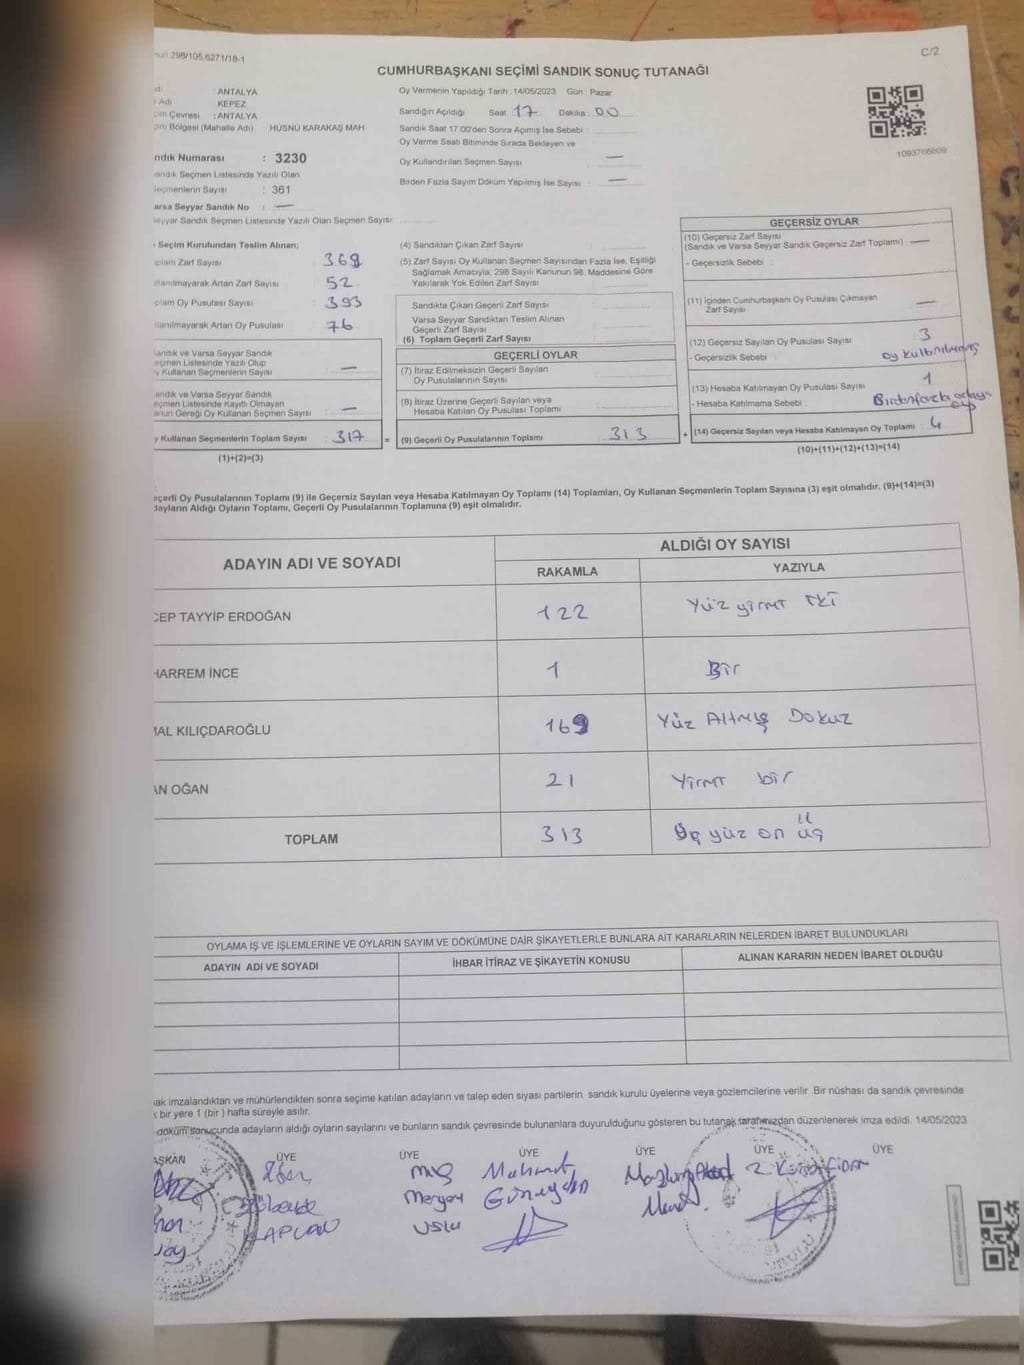 298/105,6271/18-1
C/2
CUMHURBAŞKANI SEÇİMİ SANDIK SONUÇ TUTANAĞI
: ANTALYA
Adı : KEPEZ
Çevresi : ANTALYA
Bölgesi (Mahalle Adı) : HÜSNÜ KARAKAŞ MAH.
ndık Numarası : 3230
andık Seçmen Listesinde Yazılı Olan
eçmenlerin Sayısı : 361
arsa Seyyar Sandık No : —
eyyar Sandık Seçmen Listesinde Yazılı Olan Seçmen Sayısı
Oy Vermenin Yapıldığı Tarih :14/05/2023 Gün : Pazar
Sandığın Açıldığı Saat 17 Dakika 00
Sandık Saat 17:00'den Sonra Açımış İse Sebebi :
Oy Verme Saati Bitiminde Sırada Bekleyen ve
Oy Kullandırılan Seçmen Sayısı : —
Birden Fazla Sayım Döküm Yapılmış İse Sayısı : —
1093766609
Seçim Kurulundan Teslim Alınan;
plam Zarf Sayısı 369
llanılmayarak Artan Zarf Sayısı 52
plam Oy Pusulası Sayısı 393
llanılmayarak Artan Oy Pusulası 76
andık ve Varsa Seyyar Sandık
eçmen Listesinde Yazılı Olup
y Kullanan Seçmenlerin Sayısı —
andık ve Varsa Seyyar Sandık
eçmen Listesinde Kayıtlı Olmayan
anun Gereği Oy Kullanan Seçmen Sayısı —
y Kullanan Seçmenlerin Toplam Sayısı 317 =
(1)+(2)=(3)
(4) Sandıktan Çıkan Zarf Sayısı
(5) Zarf Sayısı Oy Kullanan Seçmen Sayısından Fazla İse, Eşitliği
Sağlamak Amacıyla; 298 Sayılı Kanunun 98. Maddesine Göre
Yakılarak Yok Edilen Zarf Sayısı
Sandıkta Çıkan Geçerli Zarf Sayısı
Varsa Seyyar Sandıktan Teslim Alınan
Geçerli Zarf Sayısı
(6) Toplam Geçerli Zarf Sayısı
GEÇERLİ OYLAR
(7) İtiraz Edilmeksizin Geçerli Sayılan
Oy Pusulalarının Sayısı
(8) İtiraz Üzerine Geçerli Sayılan veya
Hesaba Katılan Oy Pusulası Toplamı
(9) Geçerli Oy Pusulalarının Toplamı 313 +
GEÇERSİZ OYLAR
(10) Geçersiz Zarf Sayısı
(Sandık ve Varsa Seyyar Sandık Geçersiz Zarf Toplamı) : —
- Geçersizlik Sebebi :
(11) İçinden Cumhurbaşkanı Oy Pusulası Çıkmayan
Zarf Sayısı —
(12) Geçersiz Sayılan Oy Pusulası Sayısı 3
- Geçersizlik Sebebi : oy kullanılmamış
(13) Hesaba Katılmayan Oy Pusulası Sayısı 1
- Hesaba Katılmama Sebebi : Birden fazla adaya
oy
(14) Geçersiz Sayılan veya Hesaba Katılmayan Oy Toplamı 4
(10)+(11)+(12)+(13)=(14)
eçerli Oy Pusulalarının Toplamı (9) ile Geçersiz Sayılan veya Hesaba Katılmayan Oy Toplamı (14) Toplamları, Oy Kullanan Seçmenlerin Toplam Sayısına (3) eşit olmalıdır. (9)+(14)=(3)
dayların Aldığı Oyların Toplamı, Geçerli Oy Pusulalarının Toplamına (9) eşit olmalıdır.
ADAYIN ADI VE SOYADI
ALDIĞI OY SAYISI
RAKAMLA YAZIYLA
CEP TAYYİP ERDOĞAN 122 Yüz yirmi iki
HARREM İNCE 1 Bir
MAL KILIÇDAROĞLU 169 Yüz Altmış Dokuz
AN OĞAN 21 Yirmi bir
TOPLAM 313 Üç yüz on üç
OYLAMA İŞ VE İŞLEMLERİNE VE OYLARIN SAYIM VE DÖKÜMÜNE DAİR ŞİKAYETLERLE BUNLARA AİT KARARLARIN NELERDEN İBARET BULUNDUKLARI
ADAYIN ADI VE SOYADI İHBAR İTİRAZ VE ŞİKAYETİN KONUSU ALINAN KARARIN NEDEN İBARET OLDUĞU
ak imzalandıktan ve mühürlendikten sonra seçime katılan adayların ve talep eden siyasi partilerin sandık kurulu üyelerine veya gözlemcilerine verilir .Bir nüshası da sandık çevresinde
k bir yere 1 (bir ) hafta süreyle asılır.
döküm sonucunda adayların aldığı oyların sayılarını ve bunların sandık çevresinde bulunanlara duyurulduğunu gösteren bu tutanak tarafımızdan düzenlenerek imza edildi. 14/05/2023
AŞKAN ÜYE ÜYE ÜYE ÜYE ÜYE ÜYE
Meryem Mehmet
KAPLAN USLU Güneydın